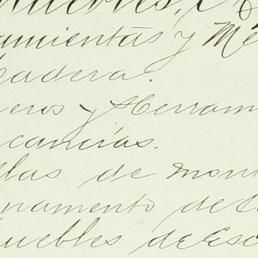 muebles,
amientas y Me
adera.
eros y Herram
cancías.
llas de mont
namento de C
uebles de Esc